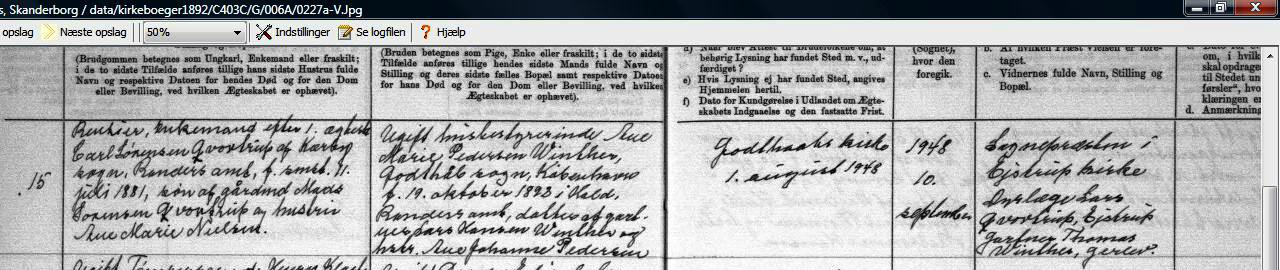 s, Skanderborg / data/kirkeboeger1892/C403C/G/006A/0227a-V.Jpg
opslag Næste opslag 50% Indstillinger Se logfilen Hjælp
(Brudgommen betegnes som Ungkarl, Enkemand eller fraskilt;
i de to sidste Tilfælde anføres tillige hendes sidste Hustrus fulde
Navn og respektive Datoen for hendes Død og for den Dom
eller Bevilling, ved hvilken Ægteskabet er ophævet).
(Bruden betegnes som Pige, Enke eller fraskilt; i de to sidste
Tilfælde anføres tillige hendes sidste Mands fulde Navn og
Stilling og deres sidste fælles Bopæl samt respektive Datoen
for hans Død og for den Dom eller Bevilling, ved hvilken
Ægteskabet er ophævet).
d) Naar blev Attest til Brudefolkene om, at
behørig Lysning har fundet Sted m. v., ud-
færdiget ?
e) Hvis Lysning ej har fundet Sted, angives
Hjemmelen hertil.
f) Dato for Kundgørelse i Udlandet om Ægte-
skabets Indgaaelse og den fastsatte Frist.
(Sognet),
hvor den
foregik.
b. Af hvilken Præst Vielsen er fore-
taget.
c. Vidnernes fulde Navn, Stilling og
Bopæl.
om, i hvilk
skal opdrage
til Stedet un
førsler", hvo
klæringen er
d. Anmærkning
15
Rentier, enkemand efter 1. ægteskab
Carl Sørensen Qvortrup af Hørby
sogn, Randers amt, f. smst. 11.
juli 1881, søn af gårdmd Mads
Sørensen Qvortrup og hustru
Ane Marie Nielsen.
Ugift husbestyrerinde Ane
Marie Pedersen Winther,
Godthåb sogn, København
f. 19. oktober 1893 i Hald,
Randers amt, datter af gart-
ner Lars Hansen Winther og
hstr. Ane Johanne Pedersen
Godthaabs kirke
1. august 1948
1948
10.
september
Sognepræsten i
Ejstrup kirke
Dyrlæge Lars
Qvortrup, Ejstrup
Gartner Thomas
Winther, Gerlev.